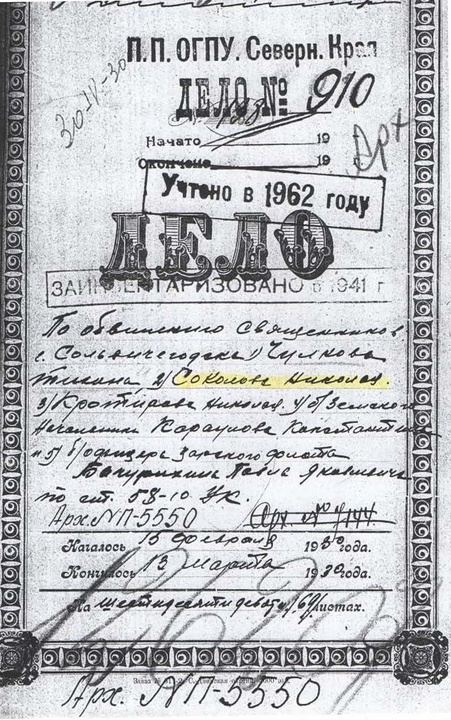 П.П. ОГПУ. Северн. Края
ДЕЛО № 910
30-IV-30
Арх
Начато 19
Окончено 19 г.
Учтено в 1962 году
ДЕЛО
ЗАИНВЕНТАРИЗОВАНО в 1941 г
По обвинению священников
г. Сольвычегодска 1) Чулкова
2) Соколова Николая
3) Николая 4) б/земского
Начальника Константина
и 5) б/офицера царского флота
Павла Яковлевича
по ст. 58-10 УК.
Арх. №П-5550
Началось 15 февраля 1930 года.
Кончилось 13 марта 1930 года.
На шестидесяти девяти /69/ листах.
Арх. №П-5550